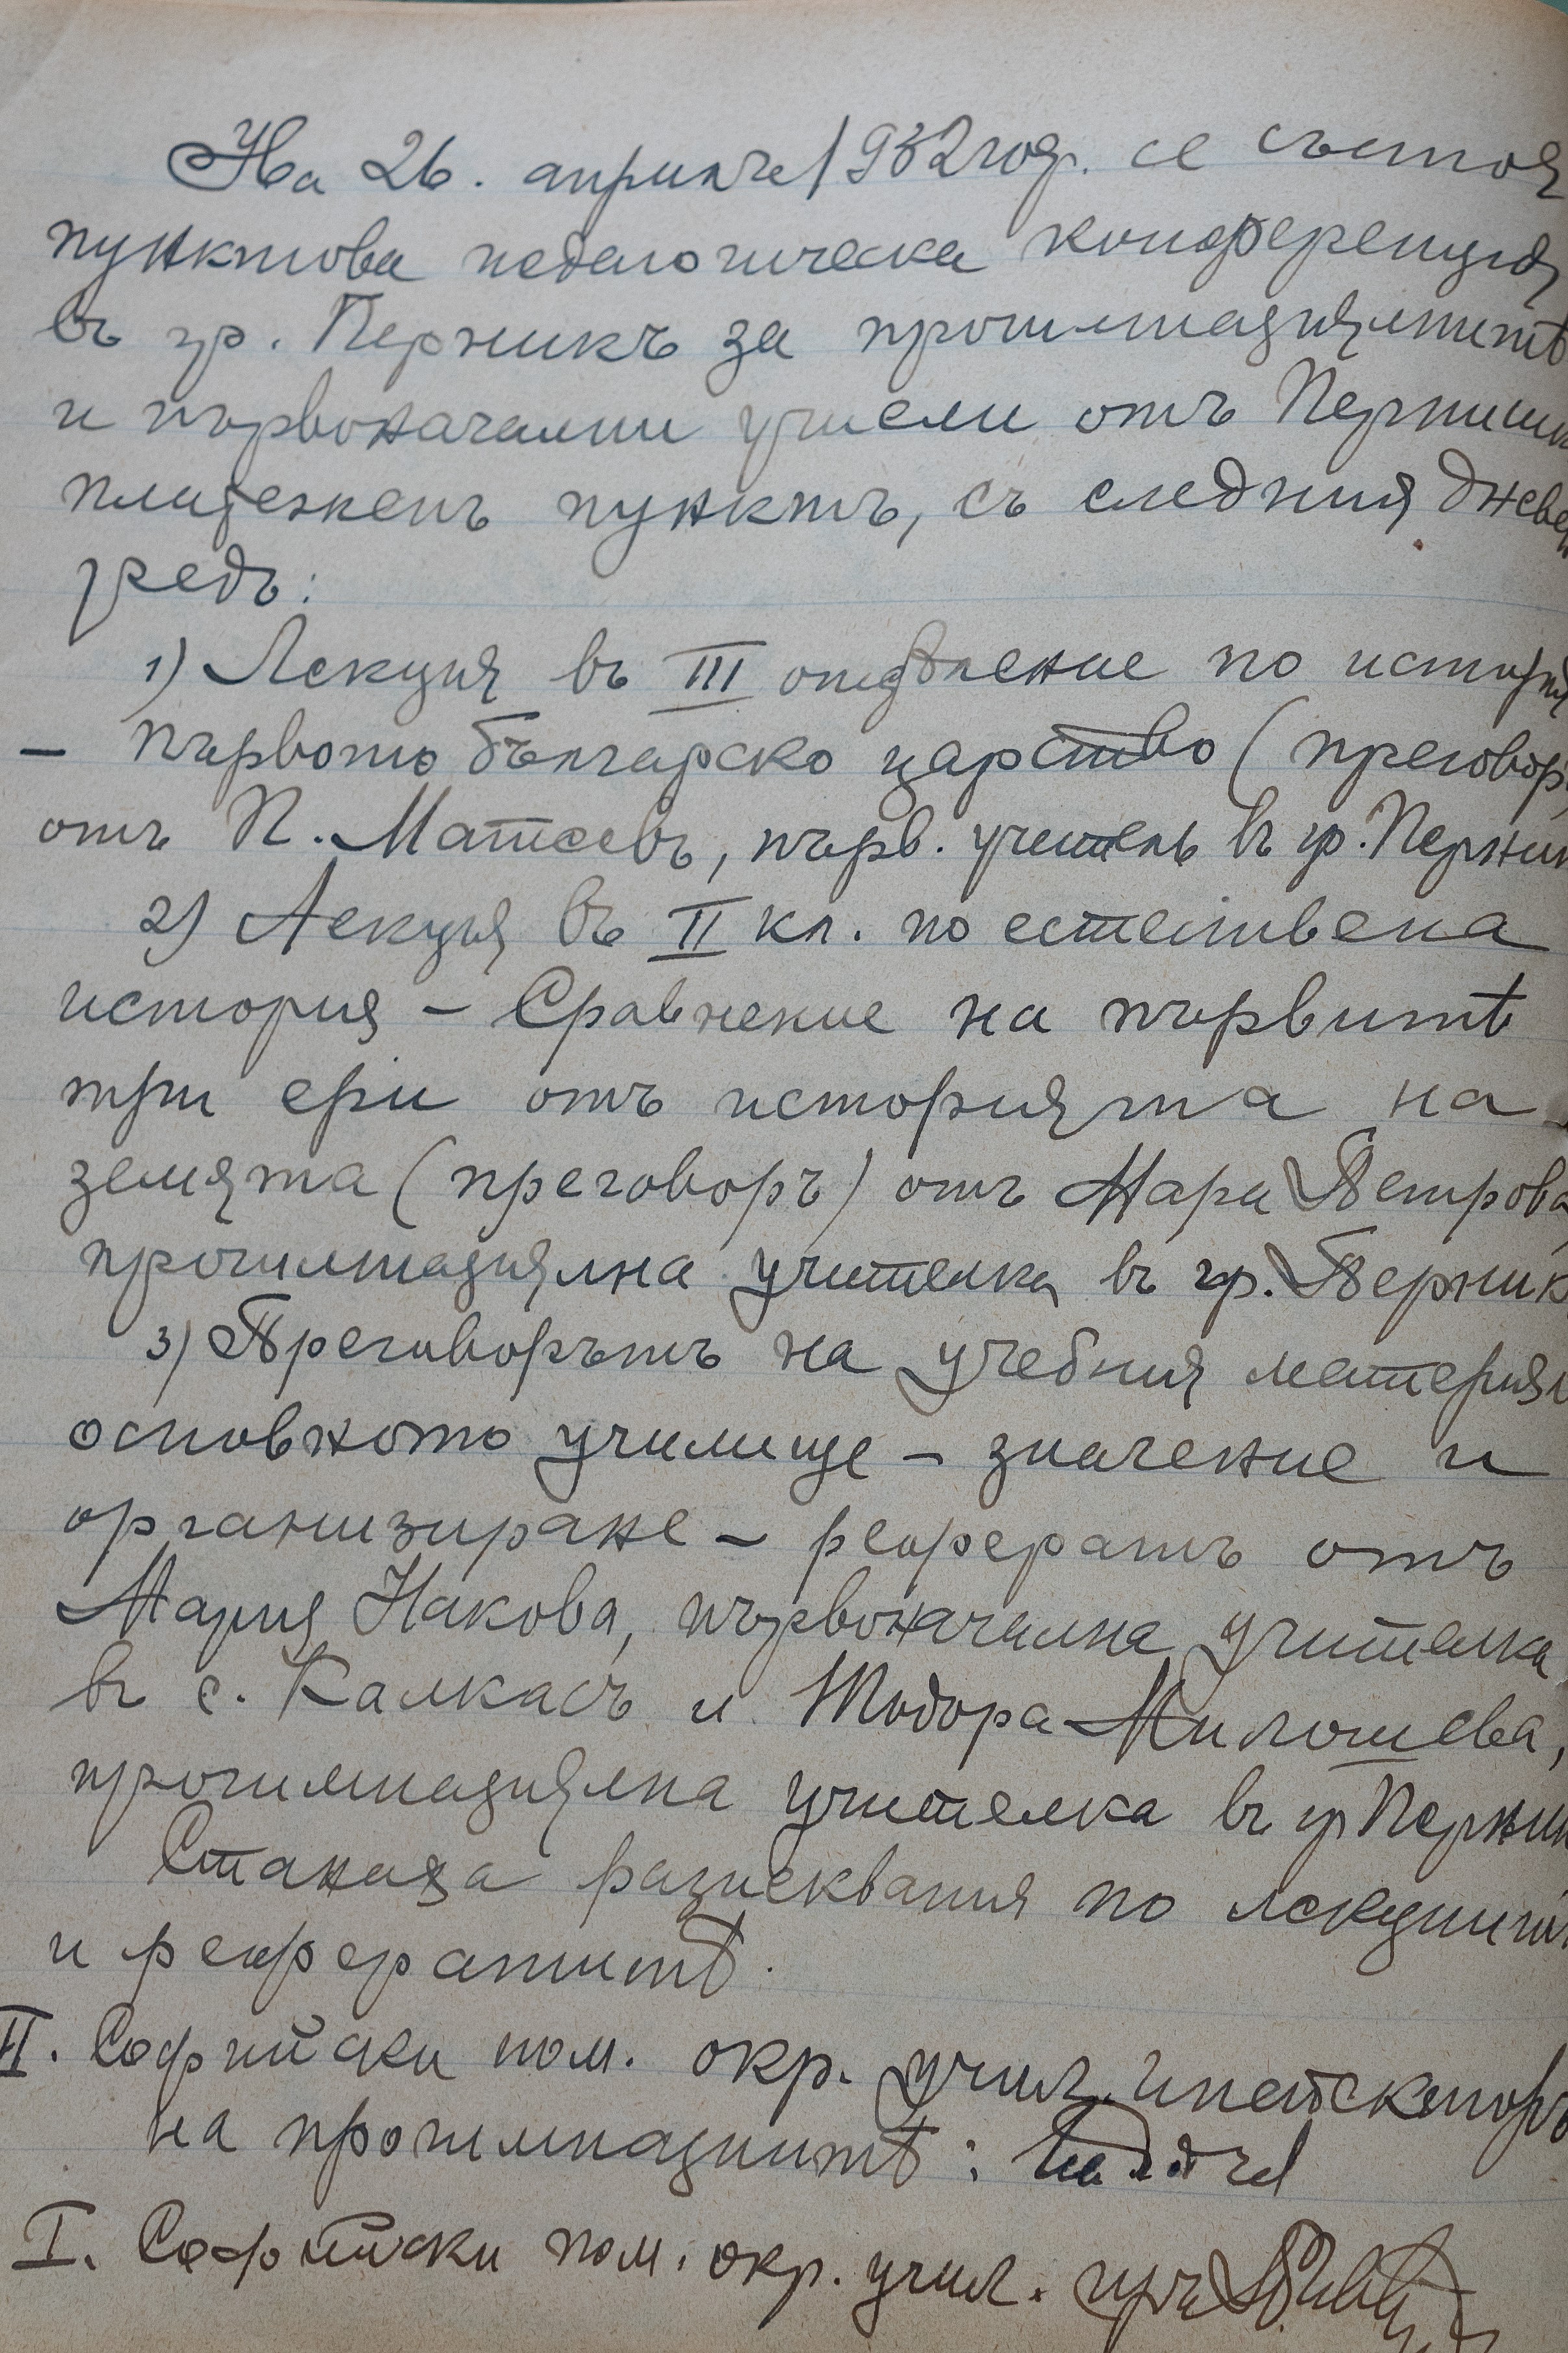 На 26. априлъ 1932 год. се състоя
пунктова педагогическа конференция
въ гр. Перникъ за прогимназиялнитѣ
и първоначални учители отъ Пернишк
платеженъ пунктъ, съ следния дневен
редъ:
1) Лекция въ III отдѣление по история
– Първото българско царство (преговор
отъ П. Матеевъ, първ. учитель въ гр. Перник
2) Лекция въ II кл. по естествена
история – Сравнение на първитѣ
три ери отъ историята на
земята (преговоръ) отъ Мара Петрова
прогимназиялна учителка въ гр. Перник
3) Преговорътъ на учебния материял
основното училище – значение и
организиране – рефератъ отъ
Мария Накова, първоначална учителка
въ с. Калкасъ и Тодора Милошева,
прогимназиялна учителка въ гр Перник
Станаха разисквания по лекциит
и рефератитѣ.
II. Софийски пом. окр. учил. инспекторъ
на прогимназиитѣ:
I. Софийски пом. окр. учил.